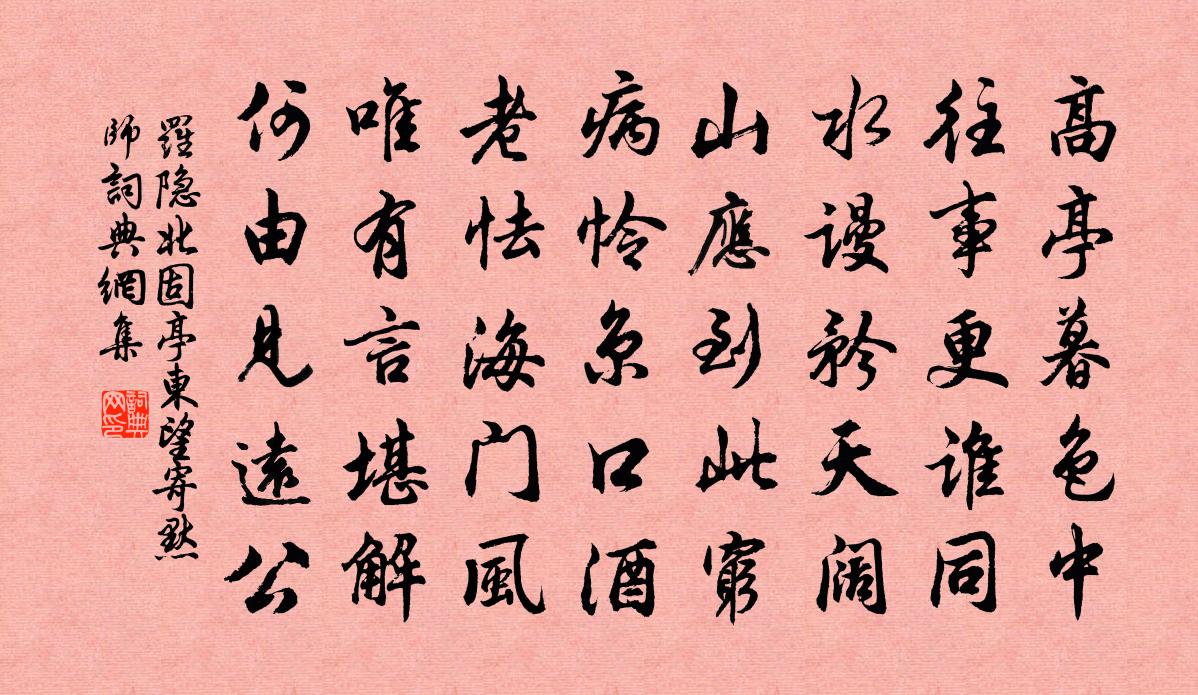 高亭暮色中
往事更谁同
水謾矜天阔
山應到此窮
病怜京口酒
老怯海门風
唯有言堪解
何由見遠公
羅隐北固亭東望寄默
師詞典網集
詞典网印